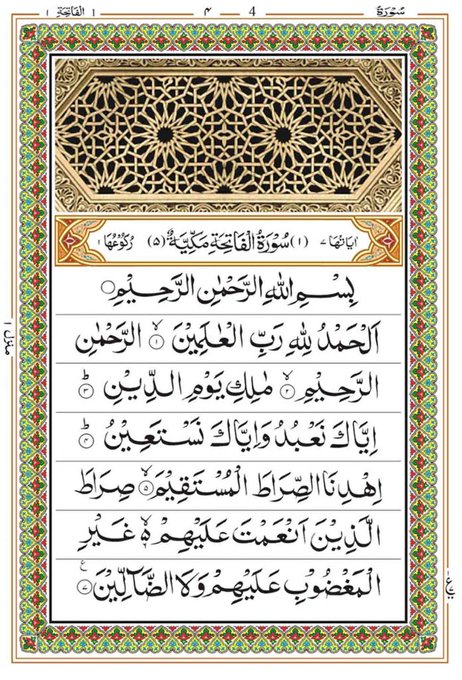 سُوْرَةُ 4 ۴ اَلْفَاتِحَةِ ١
اٰيَاتُهَا ٧ (١) سُوْرَةُ الْفَاتِحَةِ مَكِّيَّةٌ (٥) رُكُوْعُهَا ١
بِسْمِ اللّٰهِ الرَّحْمٰنِ الرَّحِيْمِ
اَلْحَمْدُ لِلّٰهِ رَبِّ الْعٰلَمِيْنَ ۙ﴿١﴾ الرَّحْمٰنِ
الرَّحِيْمِ ۙ﴿٢﴾ مٰلِكِ يَوْمِ الدِّيْنِ ؕ﴿٣﴾
اِيَّاكَ نَعْبُدُ وَاِيَّاكَ نَسْتَعِيْنُ ؕ﴿٤﴾
اِهْدِنَا الصِّرَاطَ الْمُسْتَقِيْمَ ۙ﴿٥﴾ صِرَاطَ
الَّذِيْنَ اَنْعَمْتَ عَلَيْهِمْ ۙ۬ غَيْرِ
الْمَغْضُوْبِ عَلَيْهِمْ وَلَا الضَّآلِّيْنَ ﴿٧﴾ ع
منزل ١